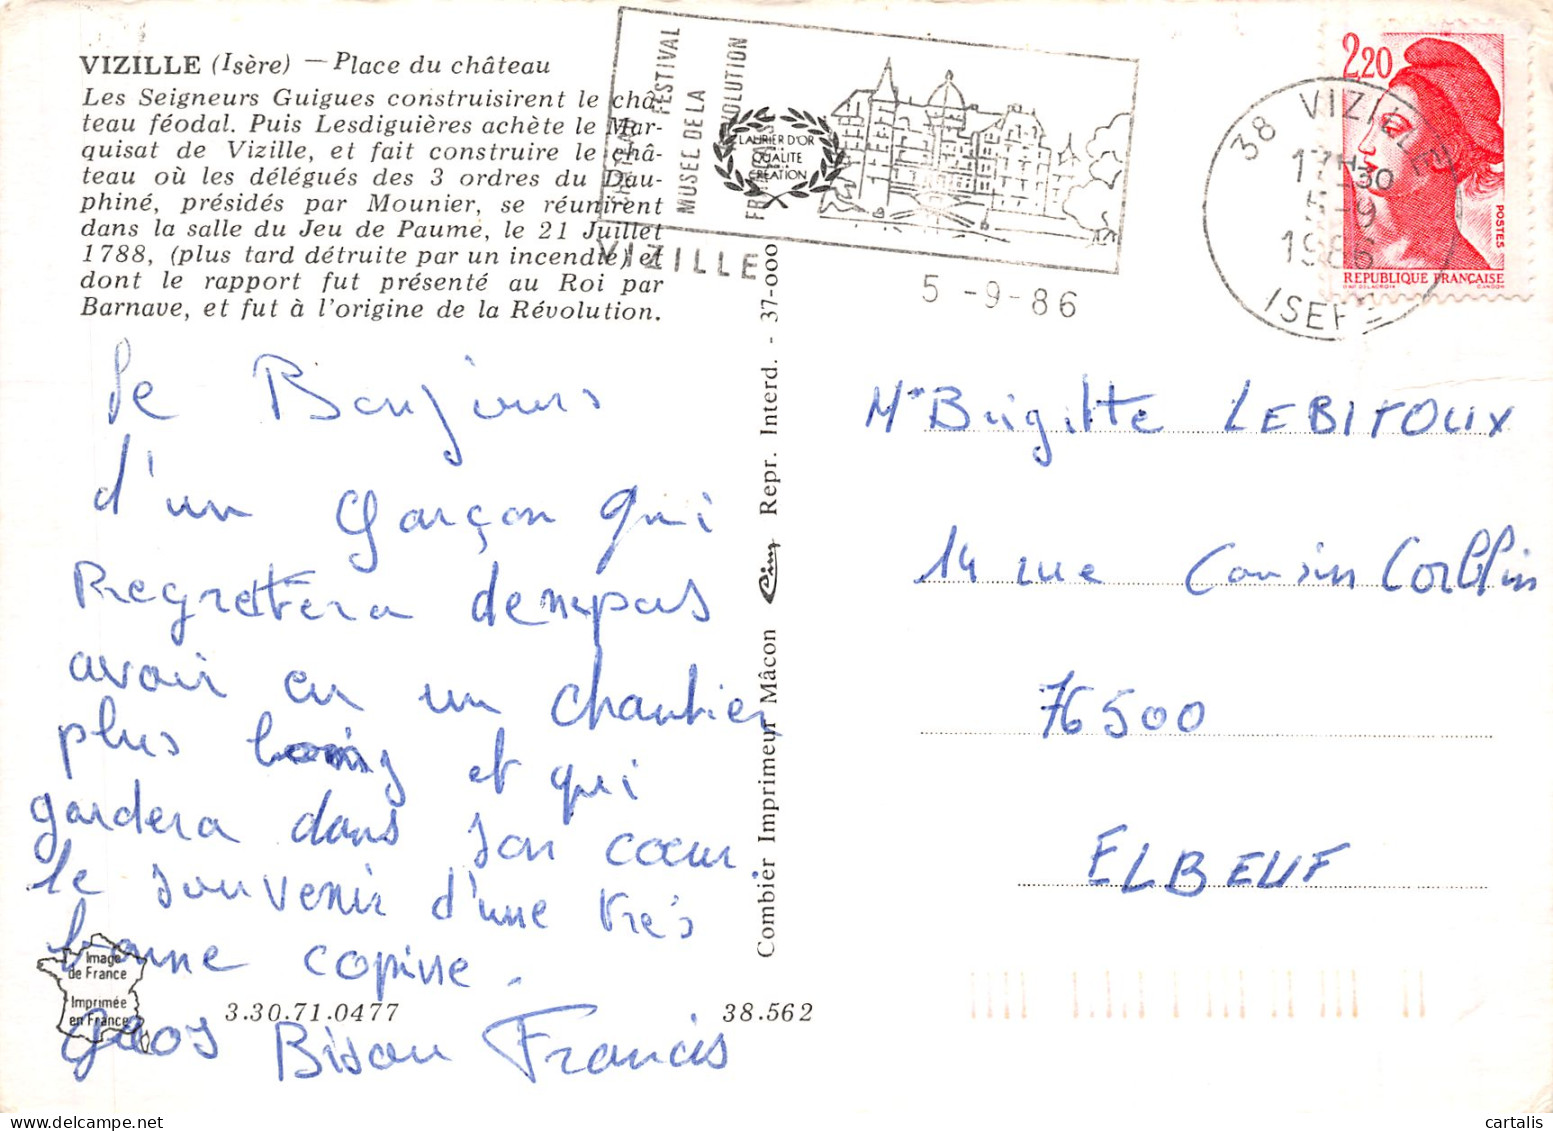 VIZILLE (Isère) — Place du château
Les Seigneurs Guigues construisirent le châ-
teau féodal. Puis Lesdiguières achète le Mar-
quisat de Vizille, et fait construire le châ-
teau où les délégués des 3 ordres du Dau-
phiné, présidés par Mounier, se réunirent
dans la salle du Jeu de Paume, le 21 Juillet
1788, (plus tard détruite par un incendie) et
dont le rapport fut présenté au Roi par
Barnave, et fut à l'origine de la Révolution.
FESTIVAL
MUSEE DE LA
VIZILLE
LAURIER D'OR
QUALITE
CREATION
5 -9-86
38 VIZILLE
17H30
5-9
1986
ISERE
2,20
POSTES
REPUBLIQUE FRANÇAISE
le Bonjours
d'un garçon qui
Regretera de n pas
avoir eu un chantier
plus loing et qui
gardera dans son cœur
le souvenir d'une très
bonne copine.
gros Bisou Francis
Image
de France
Imprimée
en France
3.30.71.0477
38.562
Combier Imprimeur Mâcon Cim Repr. Interd. - 37-000
Me Brigitte LEBITOUX
14 rue Cousin Corblin
76500
ELBEUF